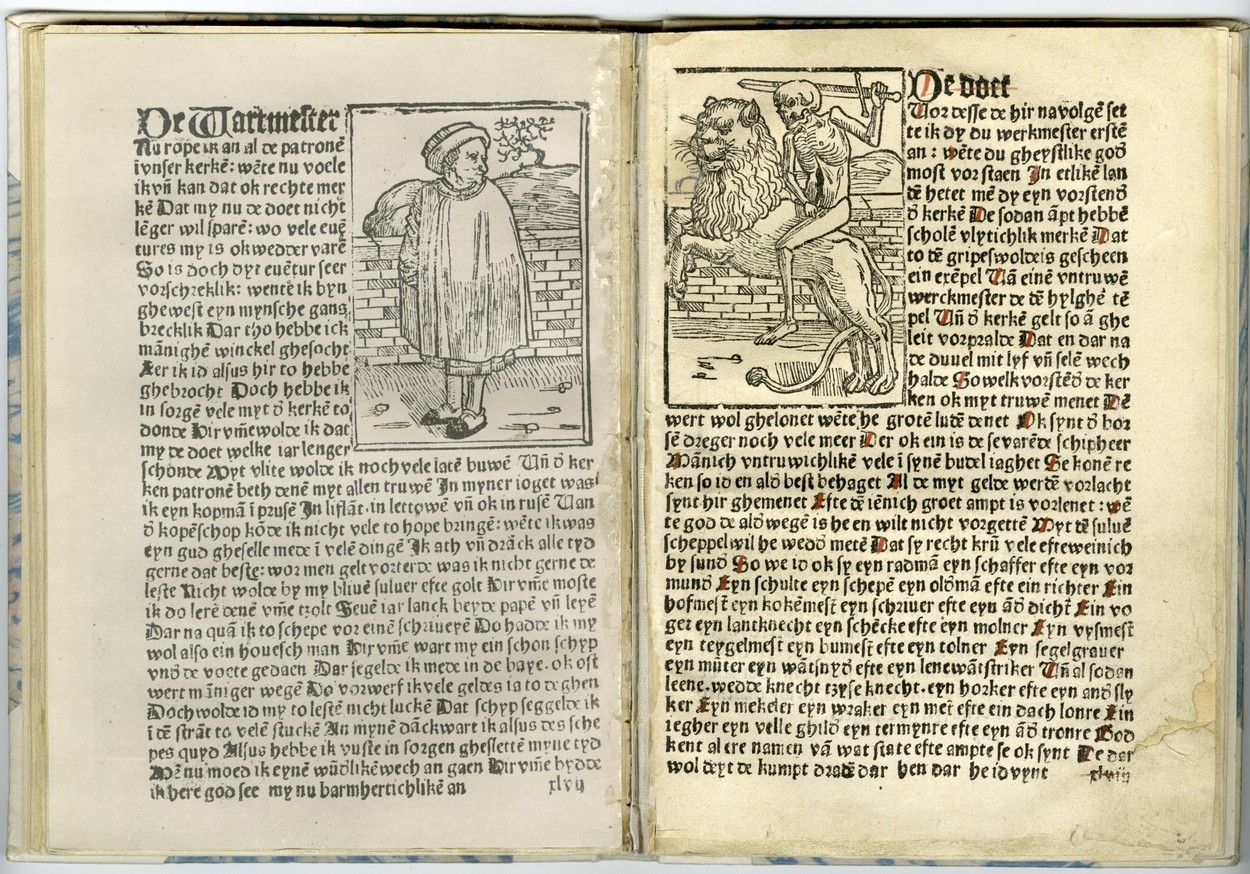 De Warkmeſter
Nu rope ik an al de patronē
ī vnſer kerkē: wēte nu voele
ik vñ kan dat ok rechte mer
kē Dat my nu de doet nicht
lēger wil ſparē: wo vele euē
tures my is ok wedder varē
So is doch dyt euētur ſeer
vorſchreklik: wente ik byn
gheweſt eyn mynſche gans
brecklik Dar tho hebbe ick
mānighē winckel gheſocht
Eer ik id alſus hir to hebbe
ghebrocht Doch hebbe ik
in ſorgē vele myt d̄ kerkē to
donde Hir vm̄e wolde ik dat
my de doet welke iar lenger
ſchonde Myt vlite wolde ik noch vele latē buwē Vñ d̄ ker
ken patronē beth denē myt allen truwē In myner ioget was
ik eyn kopmā ī pruſē In liflāt. in lettowē vñ ok in ruſē Van
d̄ kopēſchop kōde ik nicht vele to hope bringē: wēte ik was
eyn gud gheſelle mede ī velē dingē Ik ath vñ drāck alle tyd
gerne dat beſte: wor men gelt vorterde was ik nicht gerne de
leſte Nicht wolde by my bliuē ſuluer efte golt Hir vm̄e moſte
ik do lerē denē vm̄e tzolt Seuē iar lanck beyde papē vñ leyē
Dar na quā ik to ſchepe vor einē ſchriueyē Do hadde ik my
wol alſo ein houeſch man Hir vm̄e wart my ein ſchon ſchyp
vnd̄ de voete gedaen Dar ſegelde ik mede in de baye. ok oſt
wert māniger wegē Do vorwerf ik vele geldes ia to deghen
Doch wolde id my to leſtē nicht luckē Dat ſchyp ſeggelde ik
ī dē ſtrāt to velē ſtuckē An mynē dāckwart ik alſus des ſche
pes quyd Alſus hebbe ik vuſte in ſorgen gheſlettē myne tyd
Mē nu moed ik eynē wūd̄likē wech an gaen Hir vm̄e bydde
ik here god ſee my nu barmhertichlikē an
xlvij
De doet
Vor deſſe de hir na volgē ſet
te ik dy du werkmeſter erſtē
an : wēte du gheyſtlike god̄
moſt vor ſtaen In etlikē lan
dē hetet mē dy eyn vorſtend̄
d̄ kerkē De ſodan āpt hebbē
ſcholē vlytichlik merkē Dat
to dē gripeſwolde is geſcheen
ein exēpel Vā einē vntruwē
werckmeſter de dē hylghē tē
pel Vñ d̄ kerkē gelt ſo ā ghe
leit vorpralde Dat en dar na
de duuel mit lyf vñ ſelē wech
halde So welk vorſtēd̄ de ker
ken ok myt truwē menet Dē
wert wol ghelonet wēte he grotē ludē denet Ok ſynt d̄ bor
ſē dreger noch vele meer Der ok ein is de ſevarēde ſchipheer
Mānich vntruwichlikē vele ī ſynē budel iaghet Se konē re
ken ſo id en ald̄ beſt behaget Al de myt gelde werdē vorlacht
ſynt hir ghemenet Efte dē iēnich groet ampt is vorlenet : wē
te god de ald̄ wegē is he en wilt nicht vorgettē Myt dē ſuluē
ſcheppel wil he wedd̄ metē Dat ſy recht krū vele efte weinich
by ſund̄ So we id ok ſy eyn radmā eyn ſchaffer efte eyn vor
mund̄ Eyn ſchulte eyn ſchepē eyn old̄mā efte ein richter Ein
hofmeſt̄ eyn kokēmeſt̄ eyn ſchriuer efte eyn ād̄ dicht̄ Ein vo
get eyn lantknecht eyn ſchēcke efte eyn molner Eyn vyſmeſt̄
eyn teygelmeſt̄ eyn bumeſt̄ efte eyn tolner Eyn ſegelgrauer
eyn mūter eyn wātſnyd̄ efte eyn lenewātſtriker Vñ al ſodan
leene. wedde knecht tzyſe knecht. eyn horker efte eyn and̄ ſly
ker Eyn mekeler eyn wraker eyn met̄ efte ein dach lonre Ein
iegher eyn velle ghild̄ eyn termynre efte eyn ād̄ tronre God
kent al ere namen vā wat ſtate efte ampte ſe ok ſynt De dar
wol deyt de kumpt drade dar hen dar he id vynt
xlviij